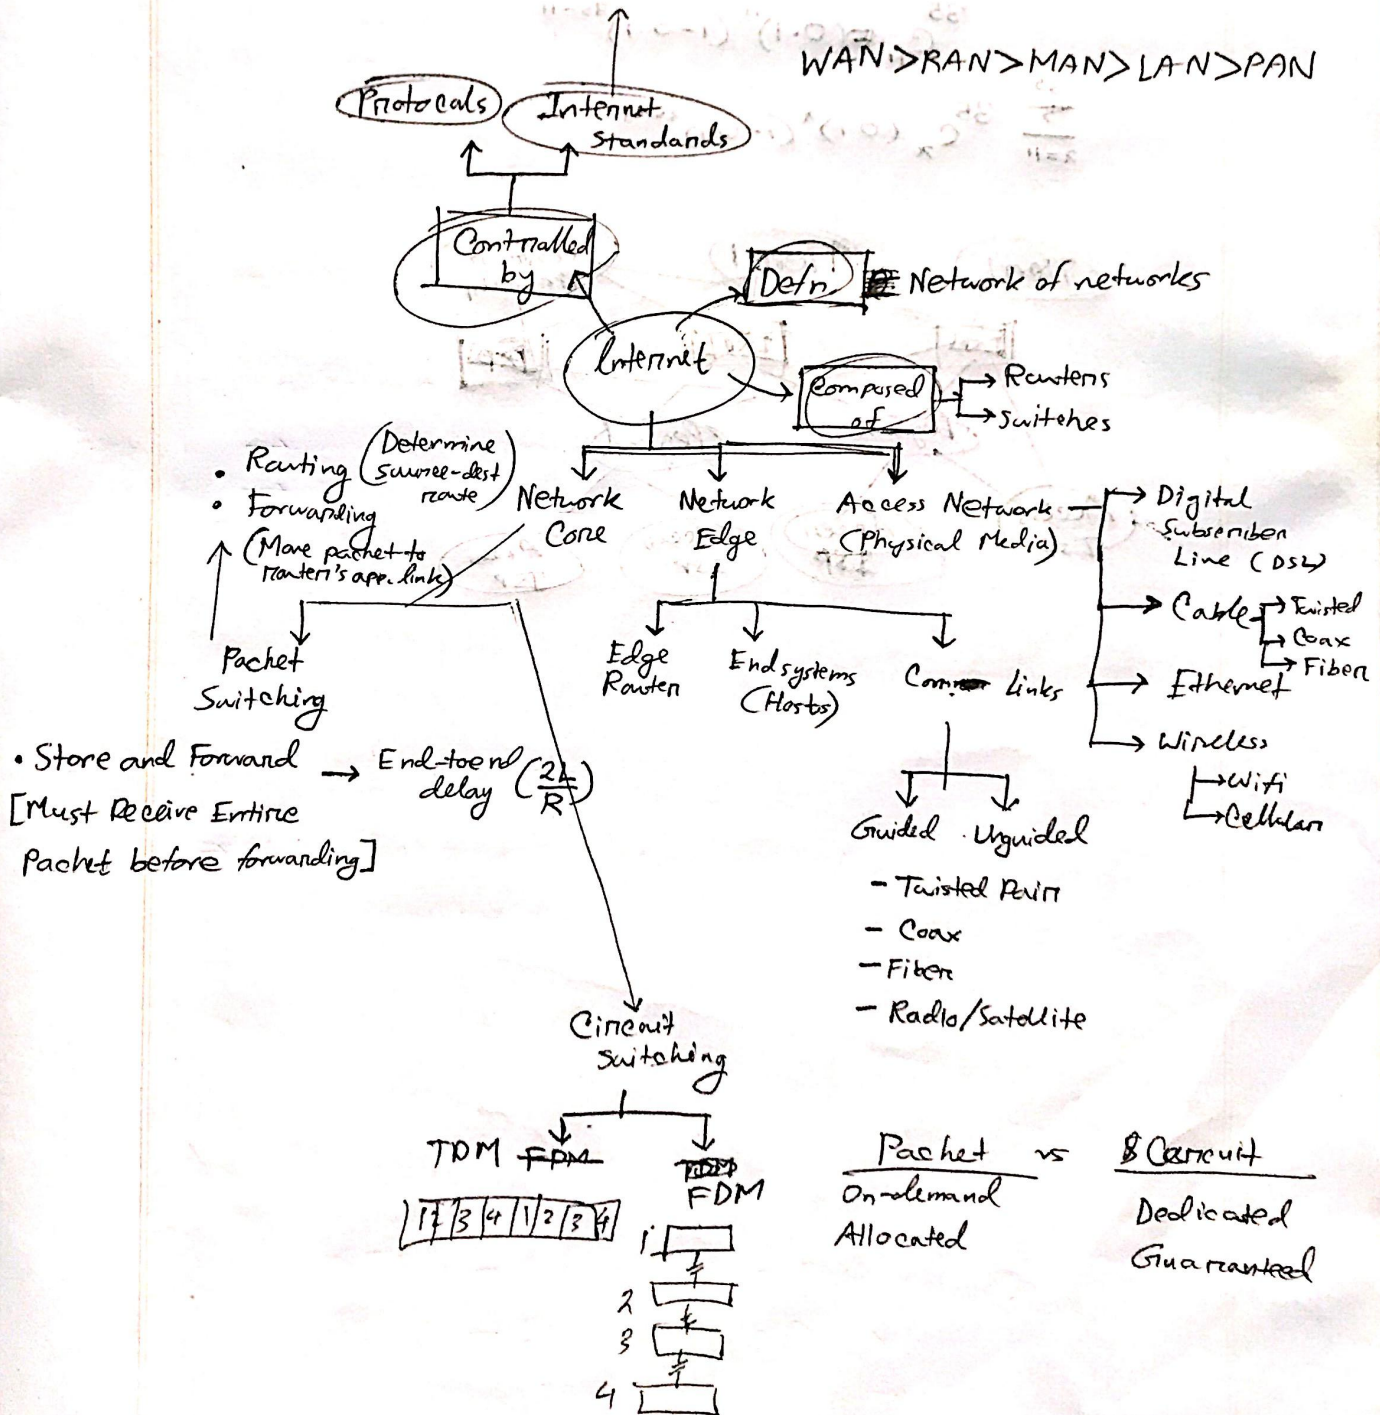 WAN>RAN>MAN>LAN>PAN
Protocals
Internet
Standards
Controlled
by
Defn
Network of networks
Internet
Composed
of
Routers
Switches
• Routing (Determine
source-dest
route)
• Forwarding
(Move packet to
router's app. link)
Network
Core
Network
Edge
Access Network
(Physical Media)
Digital
Subscriber
Line (DSL)
Cable
Twisted
Coax
Fiber
Ethernet
Wireless
Wifi
Cellular
Packet
Switching
Edge
Router
Endsystems
(Hosts)
Links
• Store and Forward → End-to end
delay (2L/R)
[Must Receive Entire
Packet before forwarding]
Guided
Unguided
- Twisted Pair
- Coax
- Fiber
- Radio/Satellite
Circuit
Switching
TDM FDM
TDM
FDM
1 2 3 4 1 2 3 4
1
2
3
4
Packet vs Circuit
On-demand
Allocated
Dedicated
Guaranteed